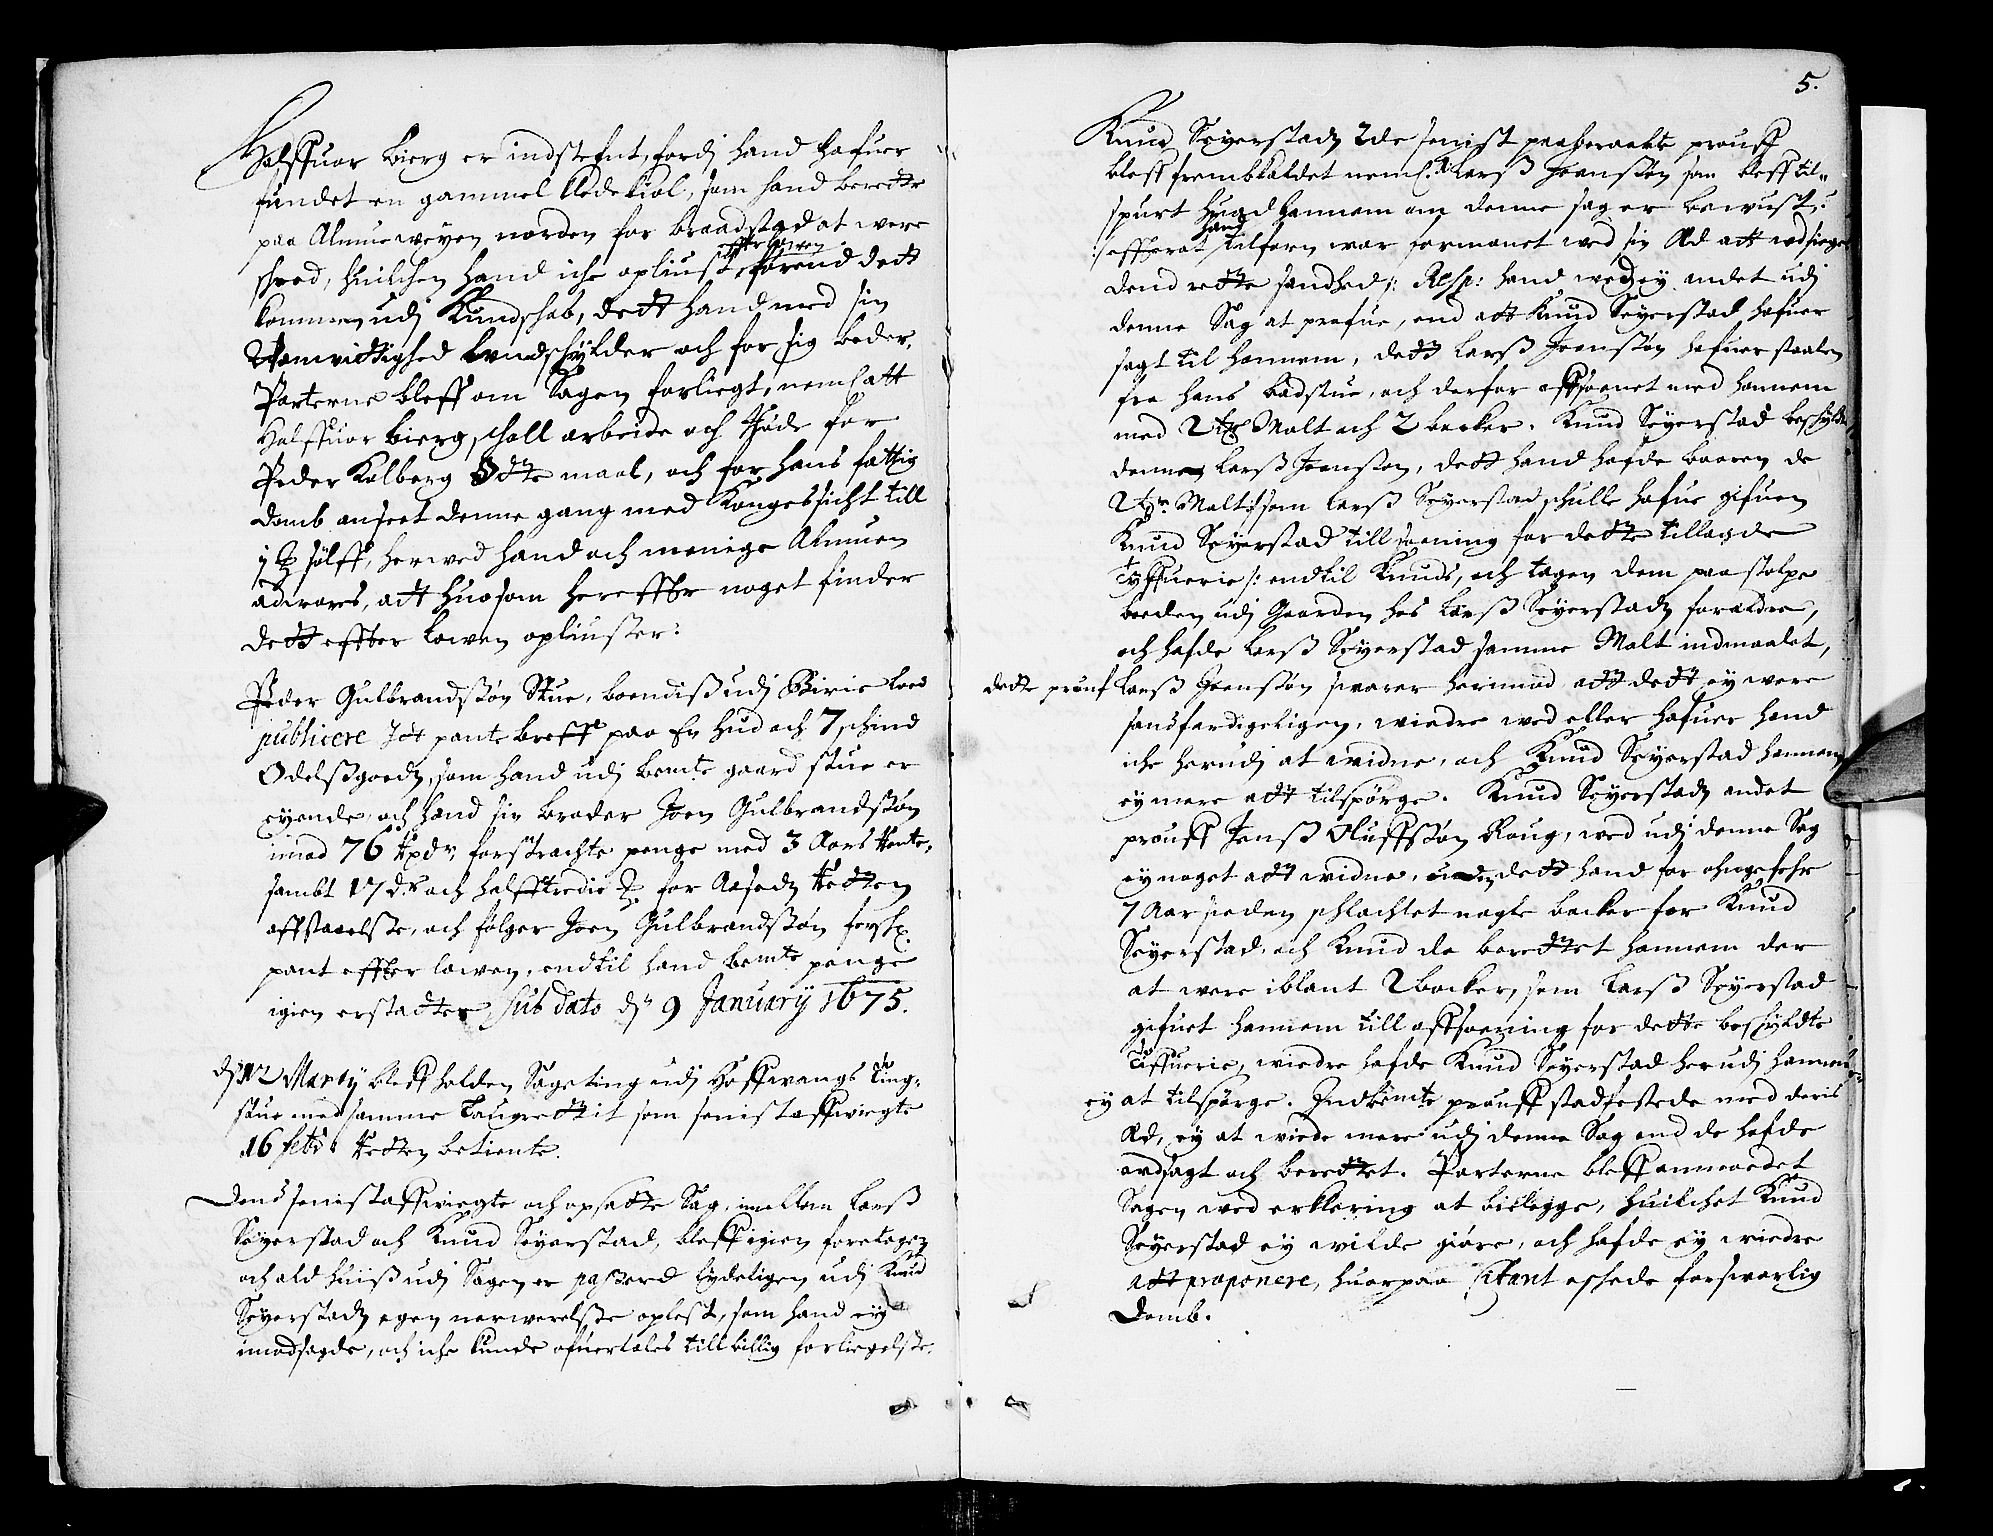 Halffuor Bierg er indstefnt, fordj hand hafuer
fundet en gammel Kledekiol, som hand berette
paa Almueweyen norden for Braadstad at were
scheed, huilchen hand iche opliust effter lowen førend dett
kommen udj Kundschab, dett hand med sin
Wanvittighed undschylder och for sig beder,
Parterne bleff om Sagen forliegt, neml: att
Halffuor Bierg schall arbeide och   for
Peder Kalberg Otte maal, och for hans fattig
domb anseet denne gang med Kongeb: sicht till
1   sølff, herwed hand och menige Almuen
adwares, att huo som hereffter noget finder
dett effter lowen opliuster:
Peder Gulbrandssøn Stue, boendiß udj Birie loed
publicere Itt pante breff paa En hud och 7 schind
Odelßgoedz, som hand udj bemte gaard Stue er
eyende, och hand sin broder Joen Gulbrandssøn
imod 76 Rxdr. forstrachte penge med 3 Aars Rente,
sambt 17 dr. och halfftredie   for Aaseds Retten
affstaaelse, och følger Joen Gulbrandssøn forsch:
pant effter lowen, endtil hand bemte penge
igien erstatter, sub dato dn 9 January 1675.
dn 12 Marty bleff holden Sageting udj Hoffwangs Ting-
stue med samme laugrettit som senist affwigte
16 febr. Retten betiente.
Dend senist affwigte och opsatte Sag, imellem Larß
Seyerstad och Knud Seyerstad, bleff igien foretagen
och ald huiß udj Sagen er passerd lydeligen udj Knud
Seyerstadz egen nerwerelse oplest, som hand ey
imodsagde, och iche kunde ofuertales till billig forliegelse.
5.
Knud Seyerstadz 2de senist paaberaabte prouff
bleff frembkaldet neml: 1. Larß Joenssøn som bleff til-
spurt huad hannem om denne sag er bewust,
/: effterat hand tilforn war formanet wed sin Æd att udsige
dend rette sandhed :/ Resp: hand wed ey andet udj
denne Sag at prøfue, end att Knud Seyerstad hafuer
sagt til hannem, dett Larß Joenssøn hafuer staalen
fra hans badstue, och derfor affsoenet med hannem
med 2   Malt och 2 bocker. Knud Seyerstad beschyldte
denne Larß Joenssøn, dett hand hafde baaren de
2   Malt /: som Larß Seyerstad schulle hafue gifuen
Knud Seyerstad till soening for dette tillagde
Tyffuerie :/ endtil Knuds, och tagen dem paa stolpe
boeden udj Gaarden hos Larß Seyerstadz forældre,
och hafde Larß Seyerstad samme Malt indmaalet,
dette prouf Larß Joenssøn swarer herimod att dett ey were
sandferdigeligen, wiedre wed eller hafuer hand
iche herudj at widne, och Knud Seyerstad hannem
ey mere att tilspørge. Knud Seyerstadz andet
prouff Jenß Oluffssøn Roug, wed udj denne Sag
ey noget att widne, uden dett hand for ohngefehr
7 Aar siden schlachtet nogle bocker for Knud
Seyerstad, och Knud da berettet hannem der
at were iblant 2 bocker, som Larß Seyerstad
gifuet hannem till affsoening for dette beschyldte
Tiffuerie, wiedre hafde Knud Seyerstad herudj hannem
ey at tilspørge. Indbemte prouff stadfestede med deris
Æd, ey at wiede mere udj denne Sag end de hafde
ardsagt och berettet. Parterne bleff anmoedet
Sagen wed erklering at bielegge, huilchet Knud
Seyerstad ey wilde giøre, och hafde ey wiedre
att proponere, huorpaa Citant eschede forswarlig
Domb.